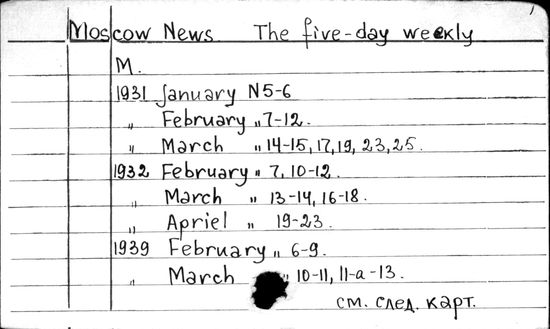 Moscow News The five-day weekly
M.
1931 January N5-6
„ February „ 7-12.
„ March „ 14-15, 17, 19, 23, 25.
1932 February „ 7, 10-12.
„ March „ 13-14, 16-18.
„ Apriel „ 19-23.
1939 February „ 6-9.
„ March „ 10-11, 11-a-13.
см. след. карт.